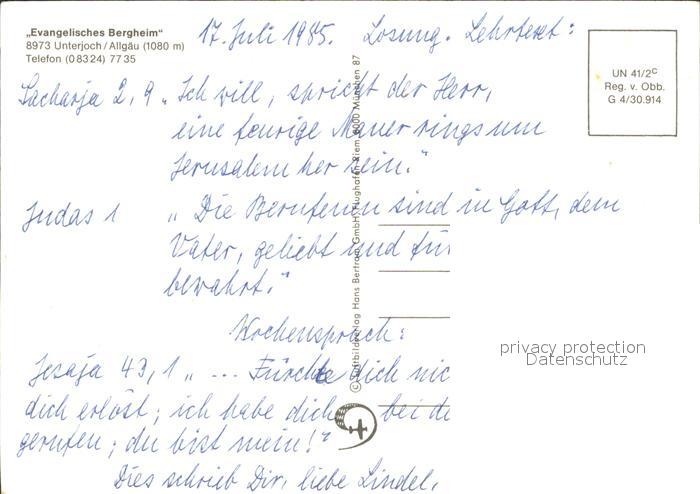 „Evangelisches Bergheim"
8973 Unterjoch/Allgäu (1080 m)
Telefon (08324) 7735
17. Juli 1985. Losung. Lehrtext:
UN 41/2c
Reg. v. Obb.
G 4/30.914
Sacharja 2, 9 „Ich will, spricht der Herr,
eine feurige Mauer rings um
Jerusalem her sein."
Judas 1 „Die Berufenen sind in Gott, dem
Vater, geliebt und für
bewahrt."
Wochenspruch:
Jesaja 43, 1 „... Fürchte dich nic
dich erlöst; ich habe dich bei de
gerufen; du bist mein!"
Dies schrieb Dir, liebe Lindel,
© Luftbildverlag Hans Bertram GmbH, Flughafen Riem, 8000 München 87
privacy protection
Datenschutz